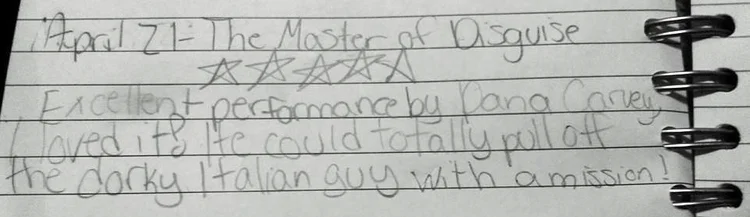 April 21- The Master of Disguise
☆☆☆☆☆
Excellent performance by Dana Carvey,
I loved it! He could totally pull off
the dorky Italian guy with a mission!